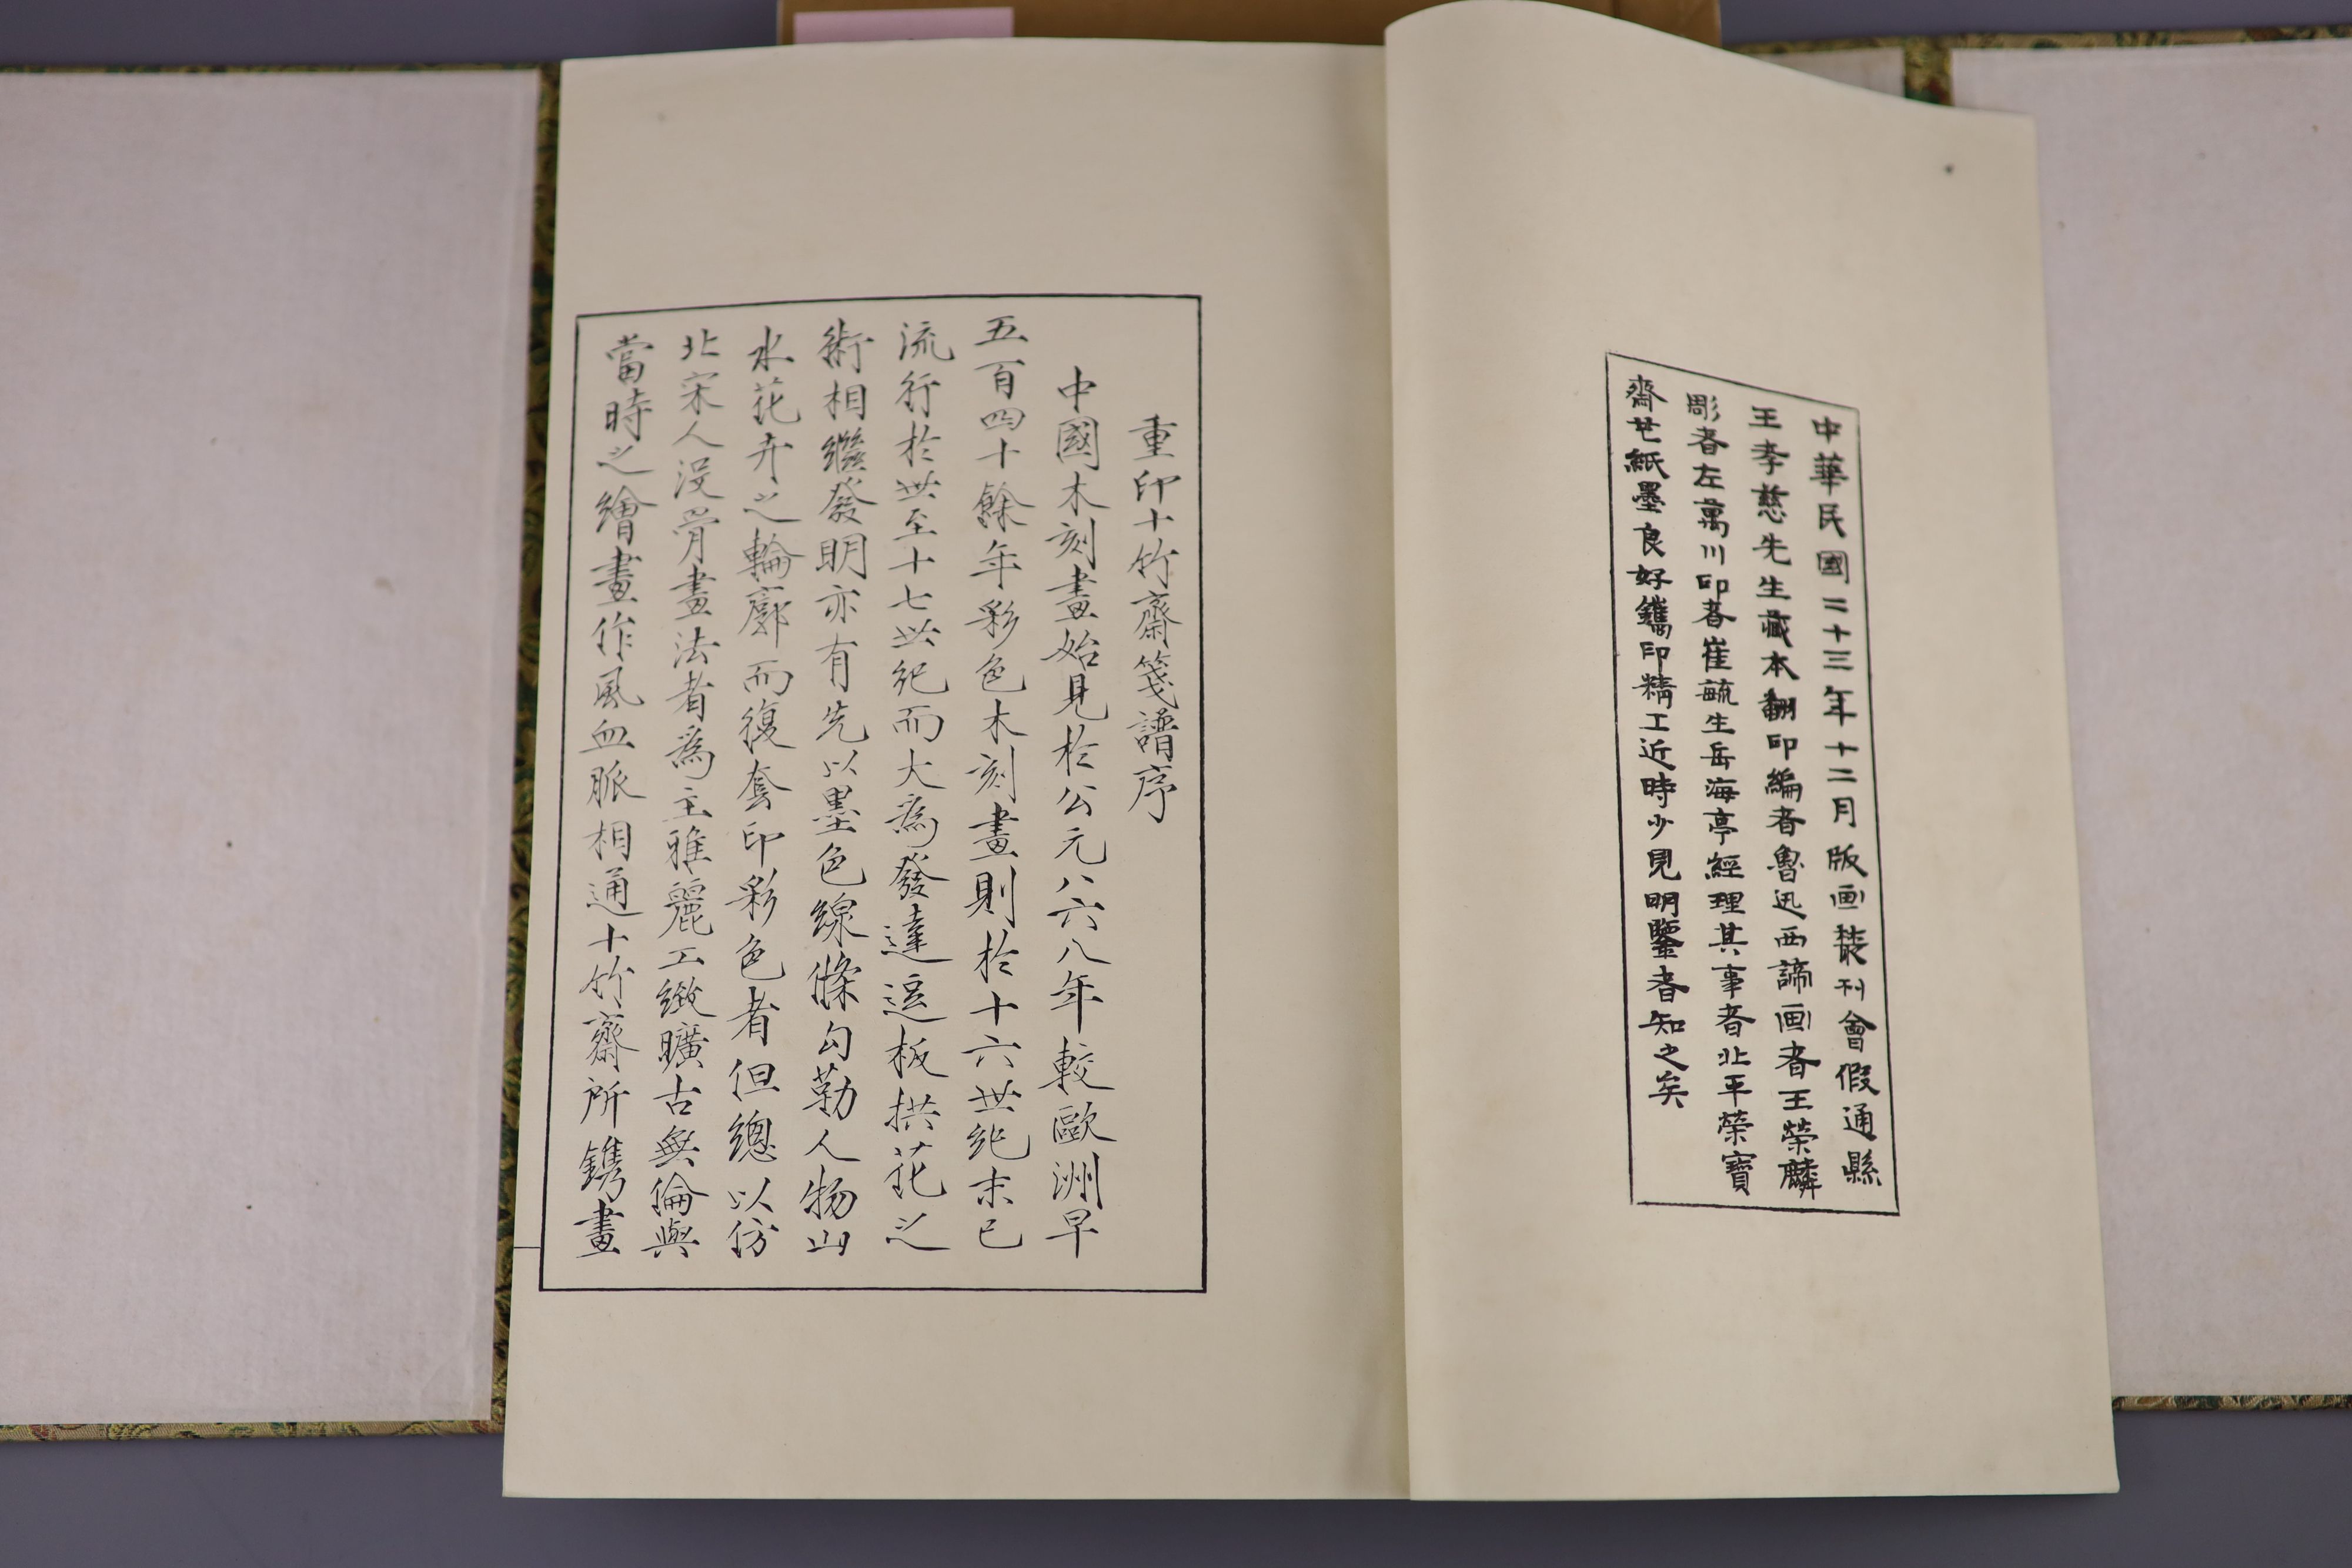 中華民國二十三年十二月版画叢刊會假通縣
王孝慈先生藏本翻印編者魯迅西諦画者王榮麟
彫者左萬川印者崔毓生岳海亭經理其事者北平榮寶
齋也紙墨良好鐫印精工近時少見明鑒者知之矣
重印十竹齋箋譜序
中國木刻畫始見於公元八六八年較歐洲早
五百四十餘年彩色木刻畫則於十六世紀末已
流行於世至十七世紀而大為發達逗板拱花之
術相繼發明亦有先以墨色線條勾勒人物山
水花卉之輪廓而復套印彩色者但總以仿
北宋人沒骨畫法者為主雅麗工緻曠古無倫與
當時之繪畫作風血脈相通十竹齋所鐫畫